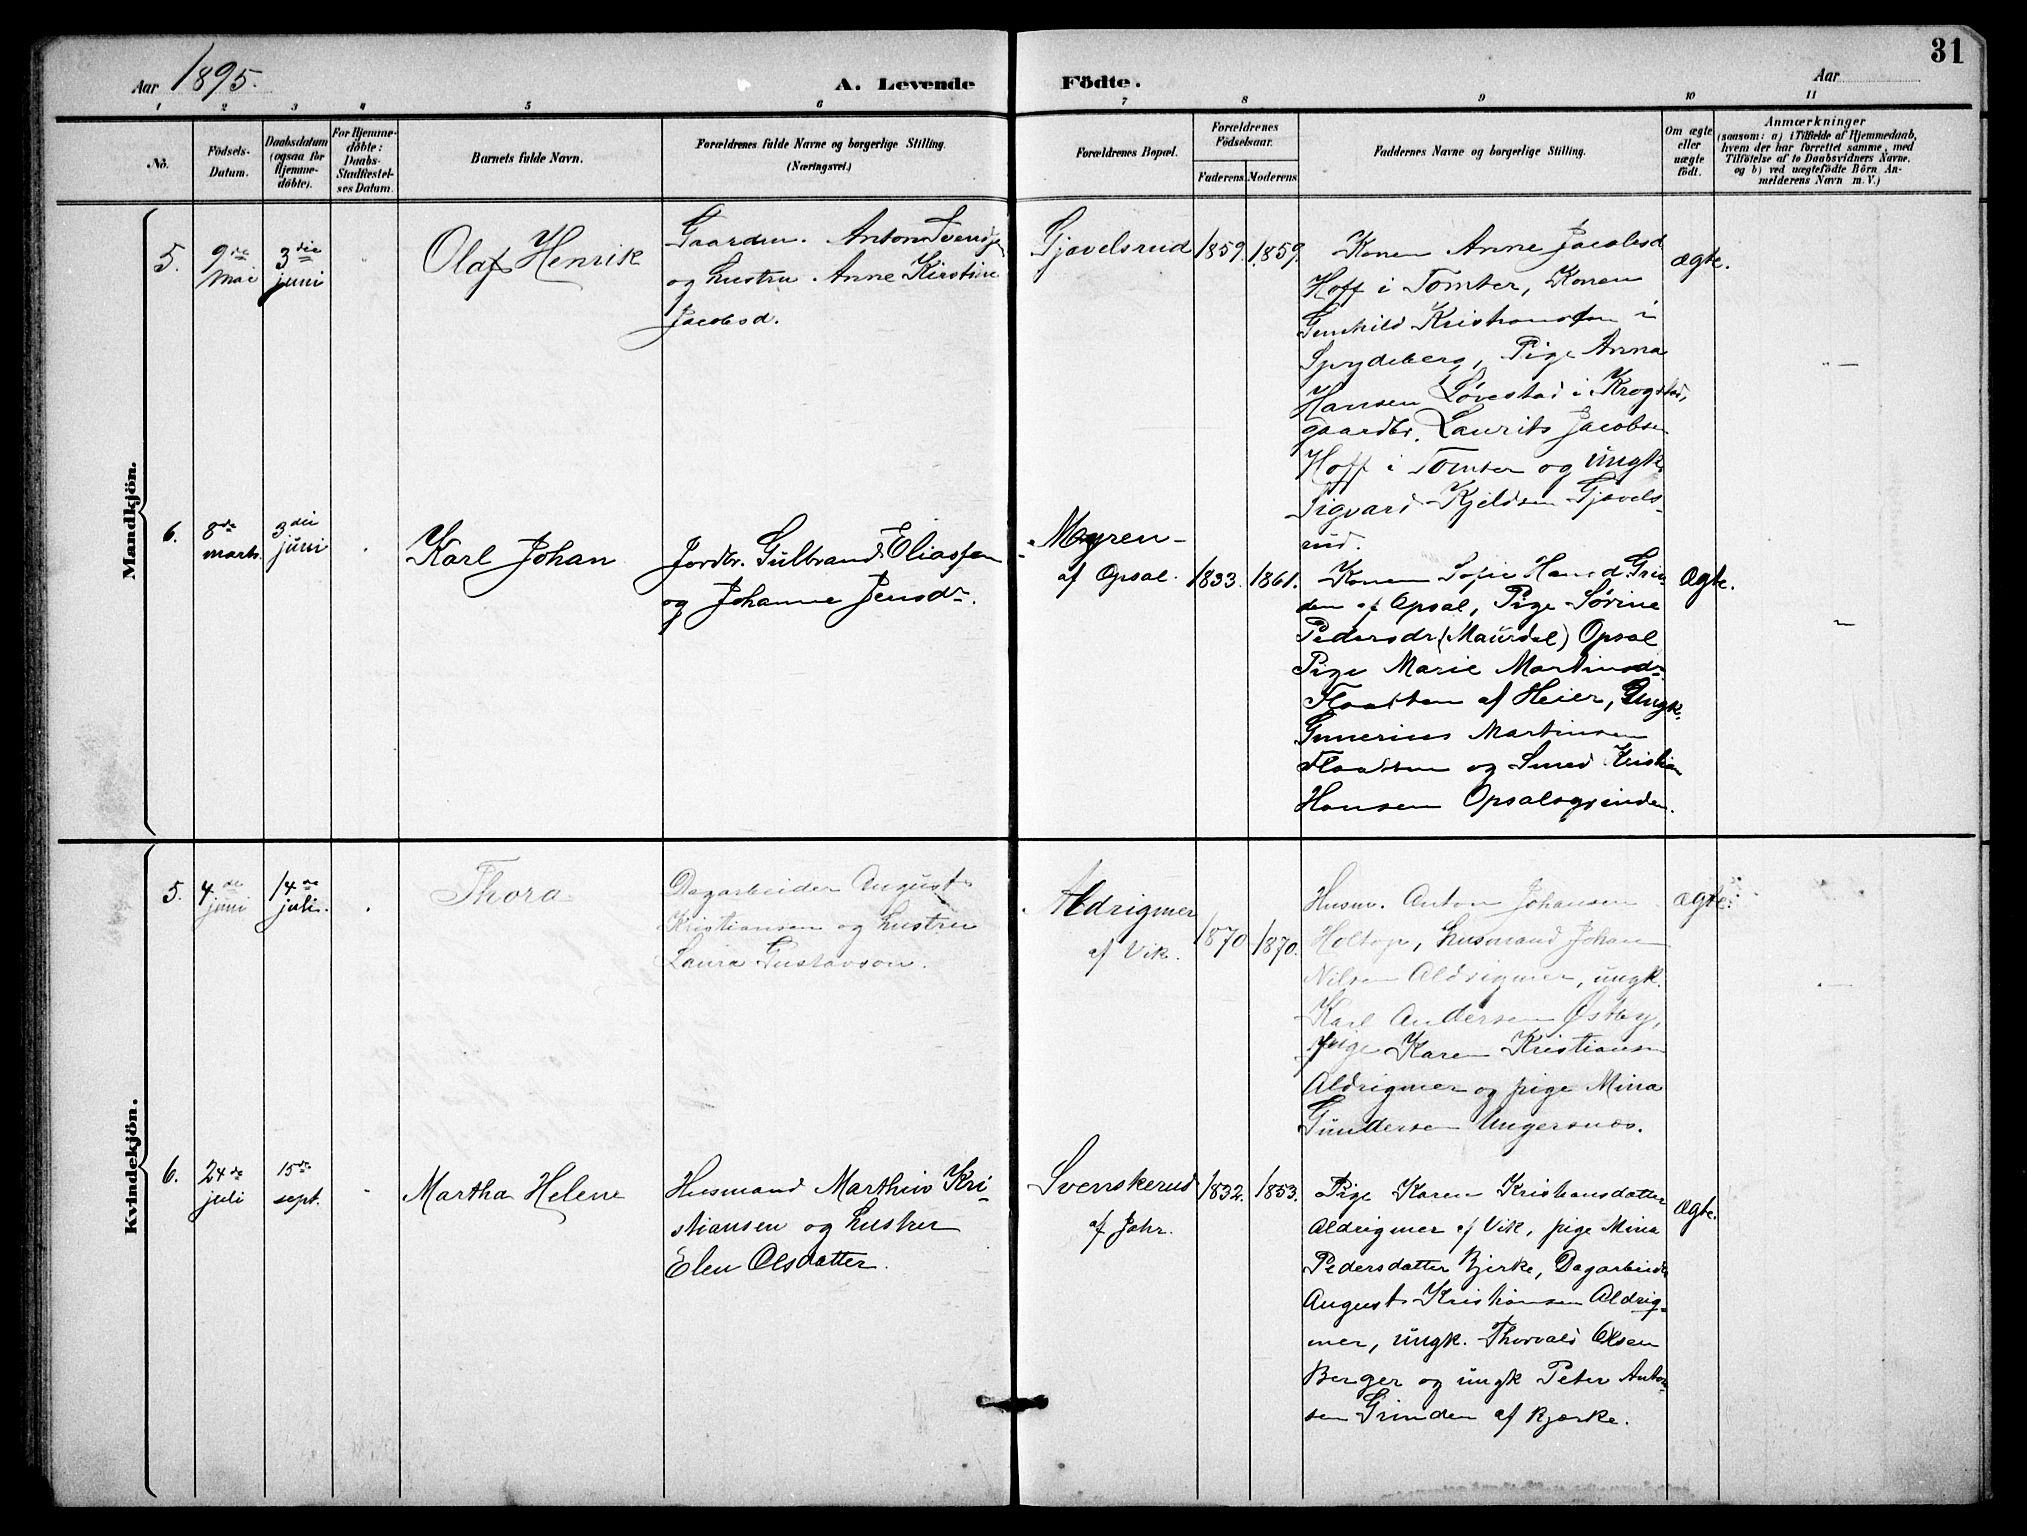 31
Aar 1895.
A. Levende Födte.
Aar
1 2 3 4 5 6 7 8 9 10 11
No.
Födsels-
Datum.
Daabsdatum
(ogsaa for
Hjemme-
döbte).
For Hjemme-
döbte:
Daabs-
Stadfæstel-
ses Datum.
Barnets fulde Navn.
Forældrenes fulde Navne og borgerlige Stilling.
(Næringsvei.)
Forældrenes Bopæl.
Forældrenes
Födselsaar.
Faderens.
Moderens.
Faddernes Navne og borgerlige Stilling.
Om ægte
eller
uægte
födt.
Anmærkninger
(saasom: a) i Tilfælde af Hjemmedaab,
hvem der har forrettet samme, med
Tilföielse af to Daabsvidners Navne,
og b) ved uægtefödte Börn An-
melderens Navn m. V.)
Mandkjön.
5.
9de
mai
3die
juni
Olaf Henrik
Gaardm. Anton Svendsen
og hustru Anne Kirstine
Jacobsd.
Gjavelsrud
1859.
1859.
Konen Anne Jacobsd
Hoff i Tomter, Konen
Gunhild Kristiansen i
Spydeberg, Pige Anna
Hansen Løvestad i Krogstad,
gaardbr. Laurits Jacobsen
Hoff i Tomter og ungk.
Sigvard Kjeldsen Gjavels-
rud.
ægte.
6.
8de
marts.
3die
juni
Karl Johan
Jordbr. Gulbrand Eliassen
og Johanne Jensdr.
Myren-
af Opsal.
1833.
1861.
Konen Sofie Hansd. Grin
den af Opsal, Pige Sørine
Pedersdr (Maurdal) Opsal
Pige Marie Martinsdr
Flaatten af Heier, Ungk.
Gunerius Martinsen
Flaatten og Smed Kristian
Hansen Opsalsgrinden.
Ægte.
Kvindekjön.
5.
4de
juni
14de
juli.
Thora
Dagarbeider August
Kristiansen og hustru
Laura Gustavson.
Aldrigmer
af Vik.
1870
1870.
Husm. Anton Johansen
Holtop, husmand Johan
Nilsen Aldrigmer, ungk.
Karl Andersen Østby,
pige Karen Kristiansen
Aldrigmer og pige Mina
Gundersen Ungersnæs.
ægte.
6.
24de
juli
15de
sept.
Martha Helene
Husmand Marthin Kri-
stiansen og hustru
Elen Olsdatter.
Svenskerud
af Jahr.
1832.
1853.
Pige Karen Kristiansdatter
Aldrigmer af Vik, pige Mina
Pedersdatter Bjerke, Dagarbeider
August Kristiansen Aldrig-
mer, ungk. Thorvald Olsen
Berger og ungk Peter Anton
sen Grinden af Bjørke.
Ægte.